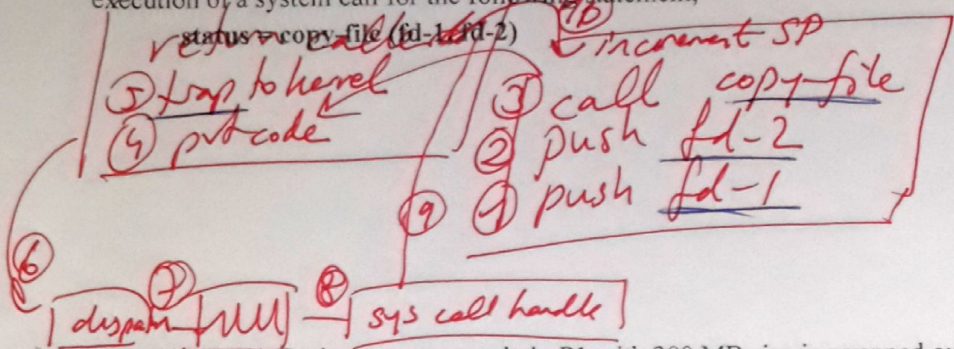 execution of a system call for the following statement,
status = copy-file (fd-1, fd-2)
10
return caller
increment SP
5 trap to kernel
3 call copy-file
4 put code
2 push fd-2
9
1 push fd-1
6
7
8
dispatch
sys call handle